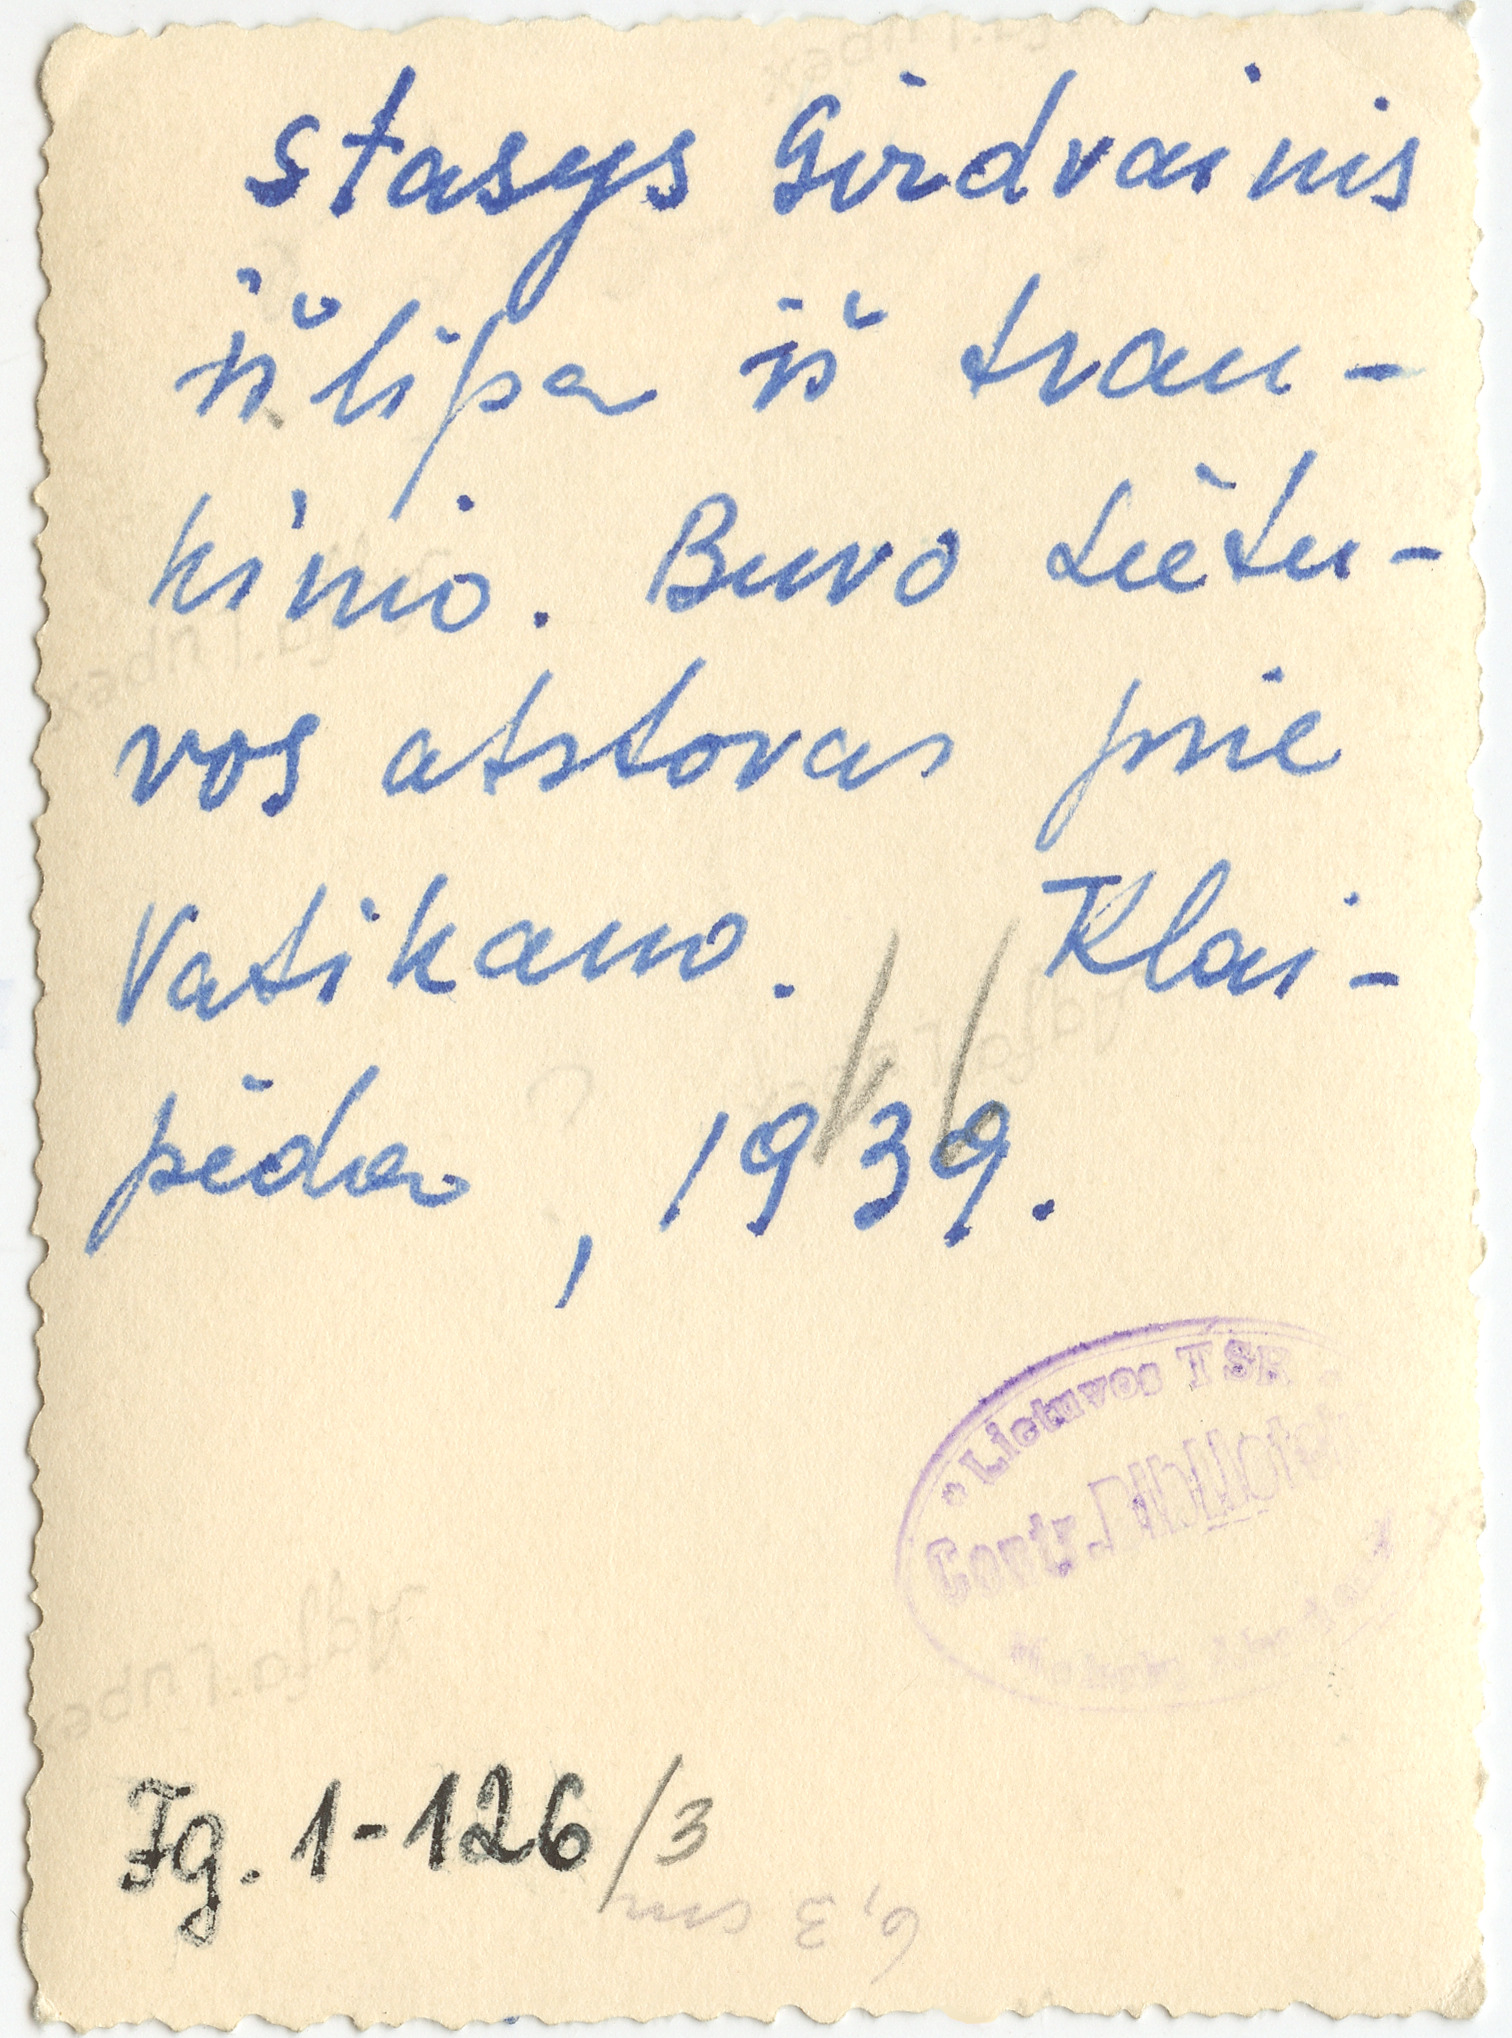 Stasys Girdvainis
išlipa iš trau-
kinio. Buvo Lietu-
vos atstovas prie
Vatikano. Klai-
pėda, 1939.
Lietuvos TSR
Centr. Bibliotek
Fg. 1-126/3
6,3 cm
Agfa-Lupex